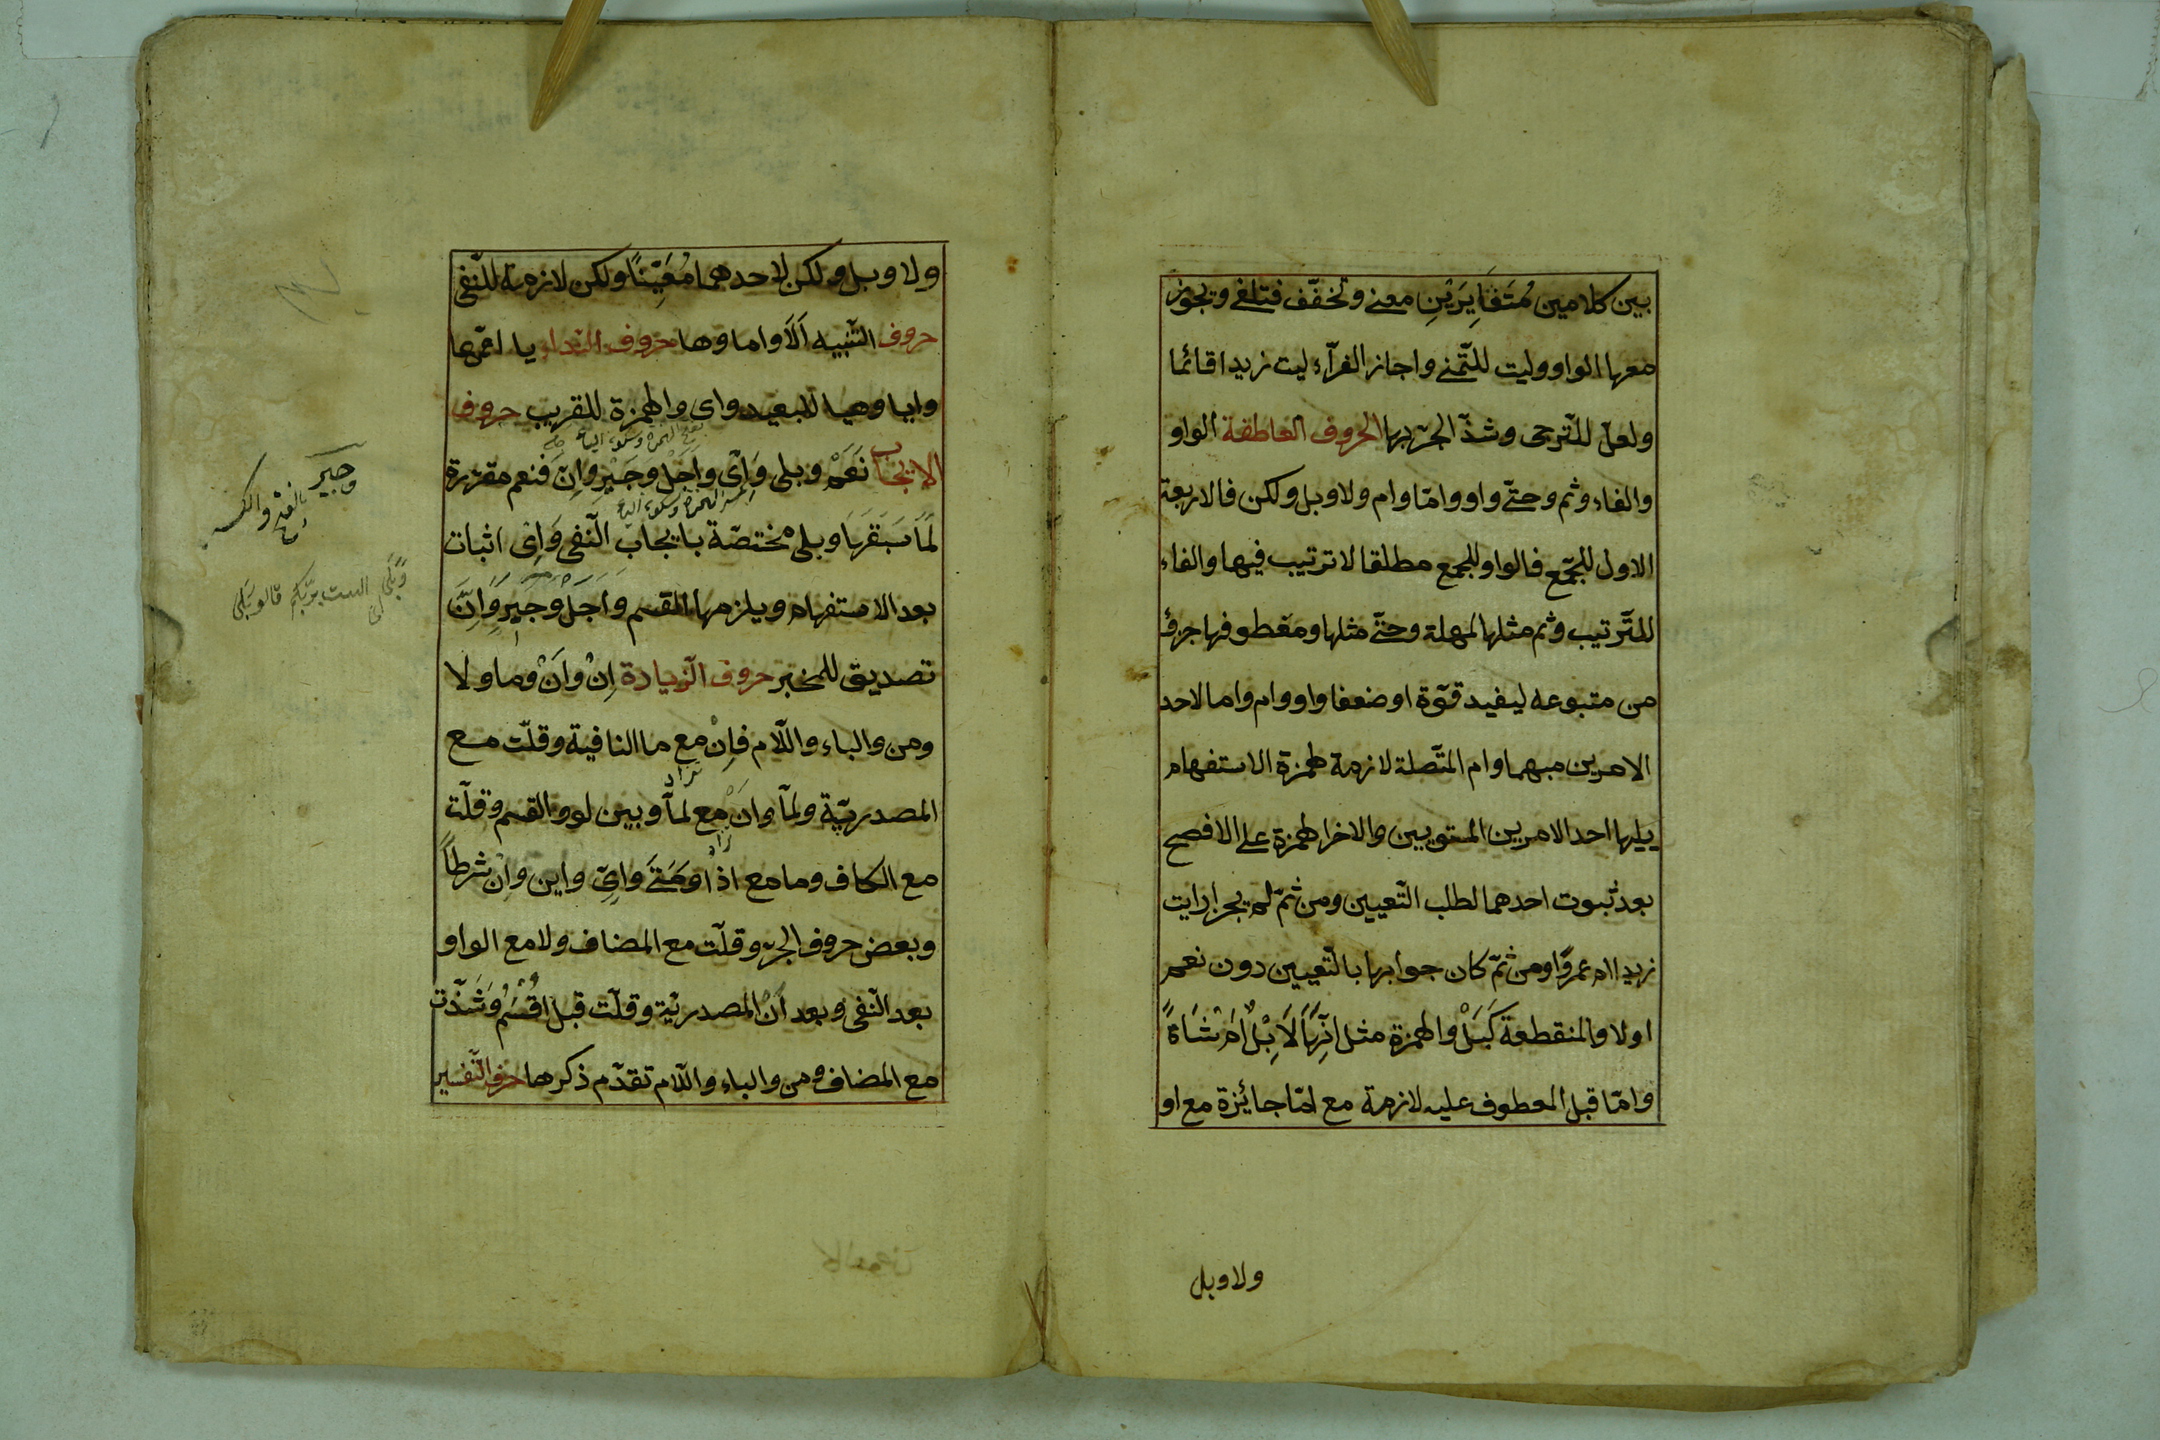 بين كلامين مُتَغَايِرَيْنِ معنى وتخفّف فتلغى ويجوز
معها الواو وليت للتّمنى واجاز الفرآء ليت زيدا قائما
ولعلّ للتّرجى وشذّ الجرّ بها الحروف العاطفة الواو
والفاء وثم وحتّى واو وامّا وام ولا وبل ولكن فالاربعة
الاول للجّمع فالواو للجمع مطلقا لا ترتيب فيها والفاء
للتّرتيب وثم مثلها لمهلة وحتّى مثلها ومعطوفها جزؤ
من متبوعه ليفيد قوّة او ضعفا واو وام واما لاحد
الامرين مبهما وام المتّصلة لازمة لهمزة الاستفهام
يليها احد الامرين المستويين والاخر الهمزة على الافصح
بعد ثبوت احدهما لطلب التّعيين ومن ثمّ لم يجز ارايت
زيدا ام عمروًا ومن ثمّ كان جوابها بالتّعيين دون نعم
اولا والمنقطعة كَبَلْ والهمزة مثل انّهَا لَاِبْلٌ اَمْ شَاةً
وامّا قبل المعطوف عليه لازمة مع امّا جائزة مع او
ولا وبل
ولا وبل ولكن لاحدهما مُعَيّنًا ولكن لازمة للنّفى
حروف التّنبيه اَلَا واما وها حروف النداء يا اعمّها
وايا وهيا للبعيد واى والهمزة للقريب حروف
بفتح الهمزة وسكون الياء
الايجاب نَعَمْ وبلى وَاِى واَجَلْ وجَيْرِ واِنّ فنعم مقرّرة
بكسر الهمزة وسكون الياء
لَمَا سَبَقَهَا وبلى مختصّة بايجاب النّفى وَاِى اثبات
بعد الاستفهام ويلزمها القسم واَجَلْ وجَيْرِ وَاِنَّ
تصديق للمخبر حروف الزّيادة اِنْ واَنْ وما ولا
ومن والباء واللّام فاِنْ مع ما النافية وقلّت مع
تزاد
المصدريّة ولمّا واَنْ مع لمآ وبين لو والقسم وقلّت
زاد
مع الكاف وما مع اذا ومَتَى واىّ واين واِنْ شرطاً
وبعض حروف الجرّ وقلّت مع المضاف ولا مع الواو
بعد النّفى وبعد اَنْ المصدريّة وقلّت قبل اُقْسِمُ وشَذّت
مع المضاف ومن والباء واللّام تقدّم ذكرها حرفا التّفسير
وجير
بالفتح والكسر
وبَلَى الست بربّكم قالو بَلَى